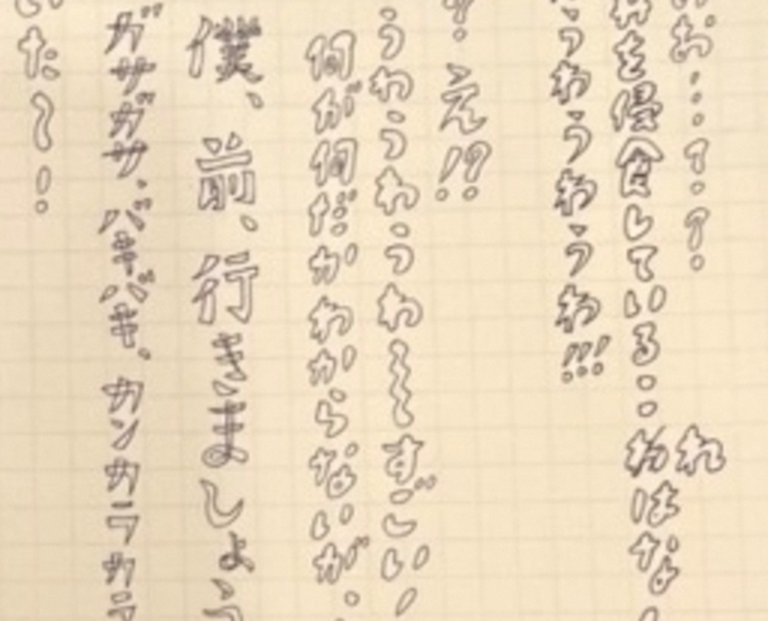 お...?.?.
を侵食している:: れ
わはな
うわうわうわ!!!
?. え!?
うわうわうわ〜〜すごい!
何が何だかわからないが、
僕、前、行きましょう
ガサガサ、バキバキ、カンカラカラ
た〜!